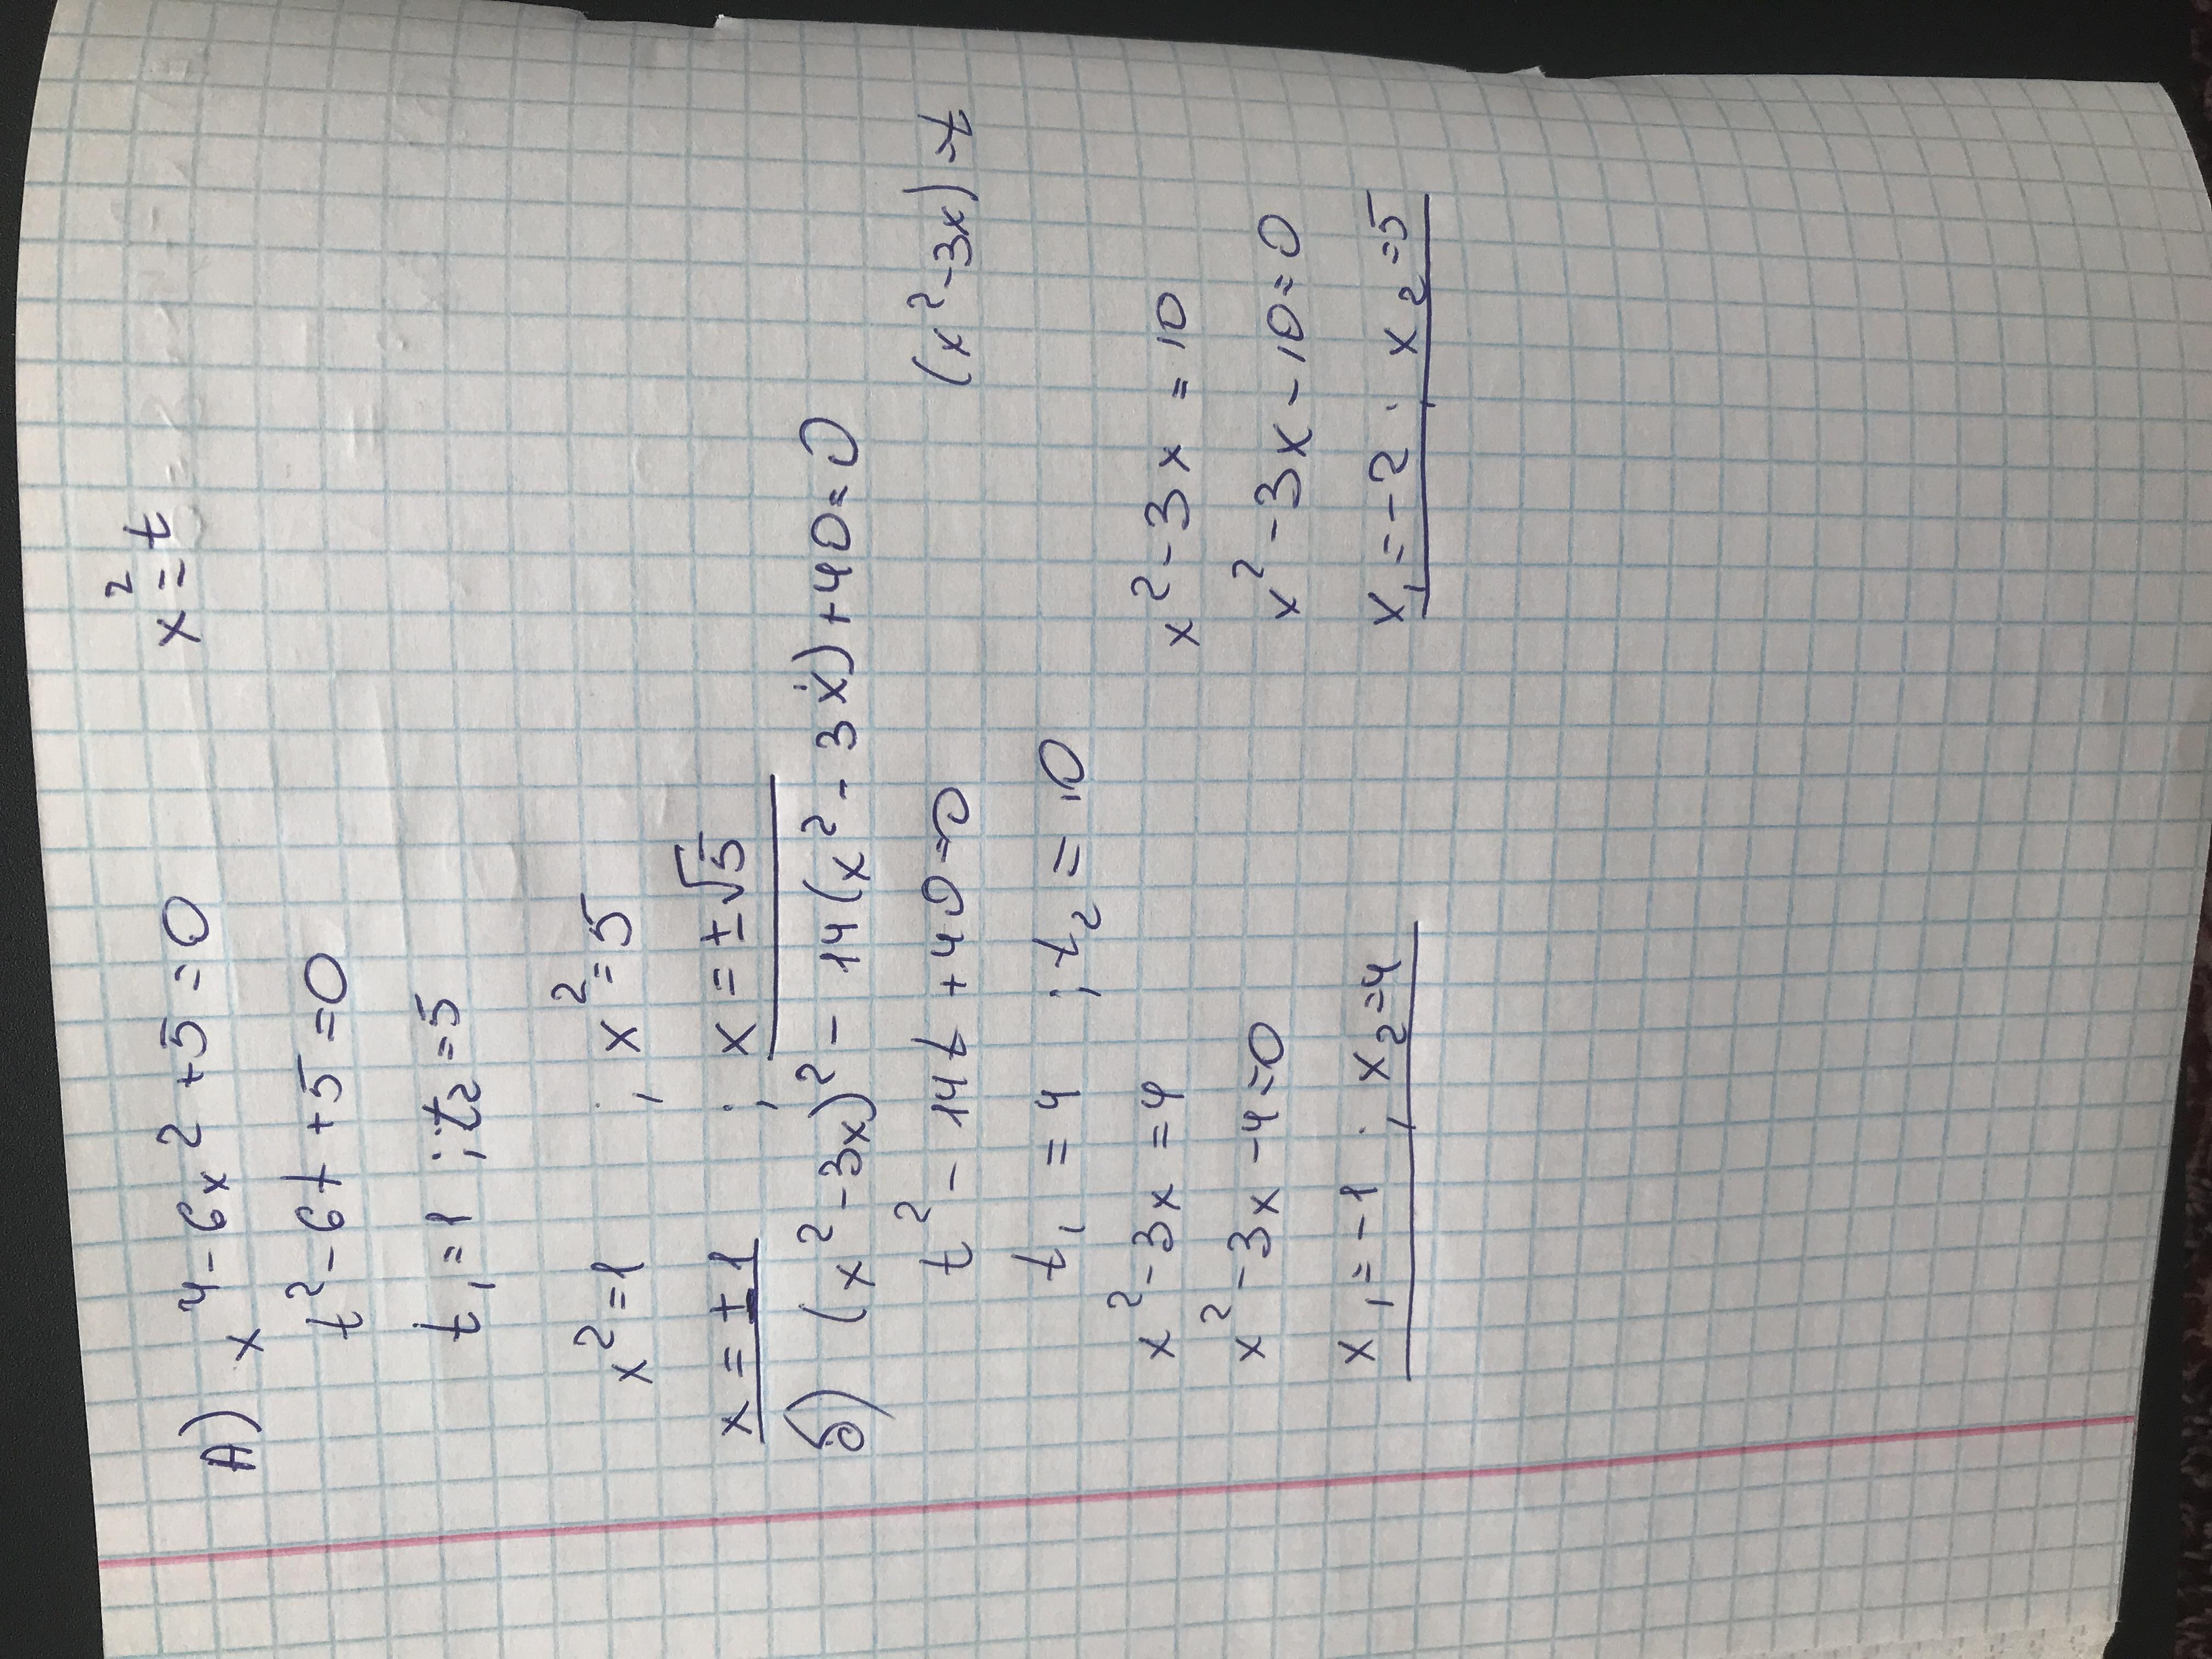 А) x⁴-6x²+5=0 x²=t
t²-6t+5=0
t₁=1 ; t₂=5
x²=1 ; x²=5
x=±1 ; x=±√5
б) (x²-3x)²-14(x²-3x)+40=0
t²-14t+40=0 (x²-3x)=t
t₁=4 ; t₂=10
x²-3x=4 x²-3x=10
x²-3x-4=0 x²-3x-10=0
x₁=-1 ; x₂=4 x₁=-2 ; x₂=5